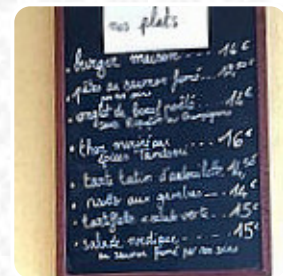 nos plats
• burger maison --- 14€
• pâtes au saumon fumé --- 13,50€
• onglet de boeuf poêlé --- 16€
sauce
• thon mariné par --- 16€
épices Tandoori
• tarte tatin d'andouillette 14,50€
• aux gambas --- 14€
• tartiflette salade verte -- 15€
• salade nordique --- 15€
au saumon fumé par nos soins